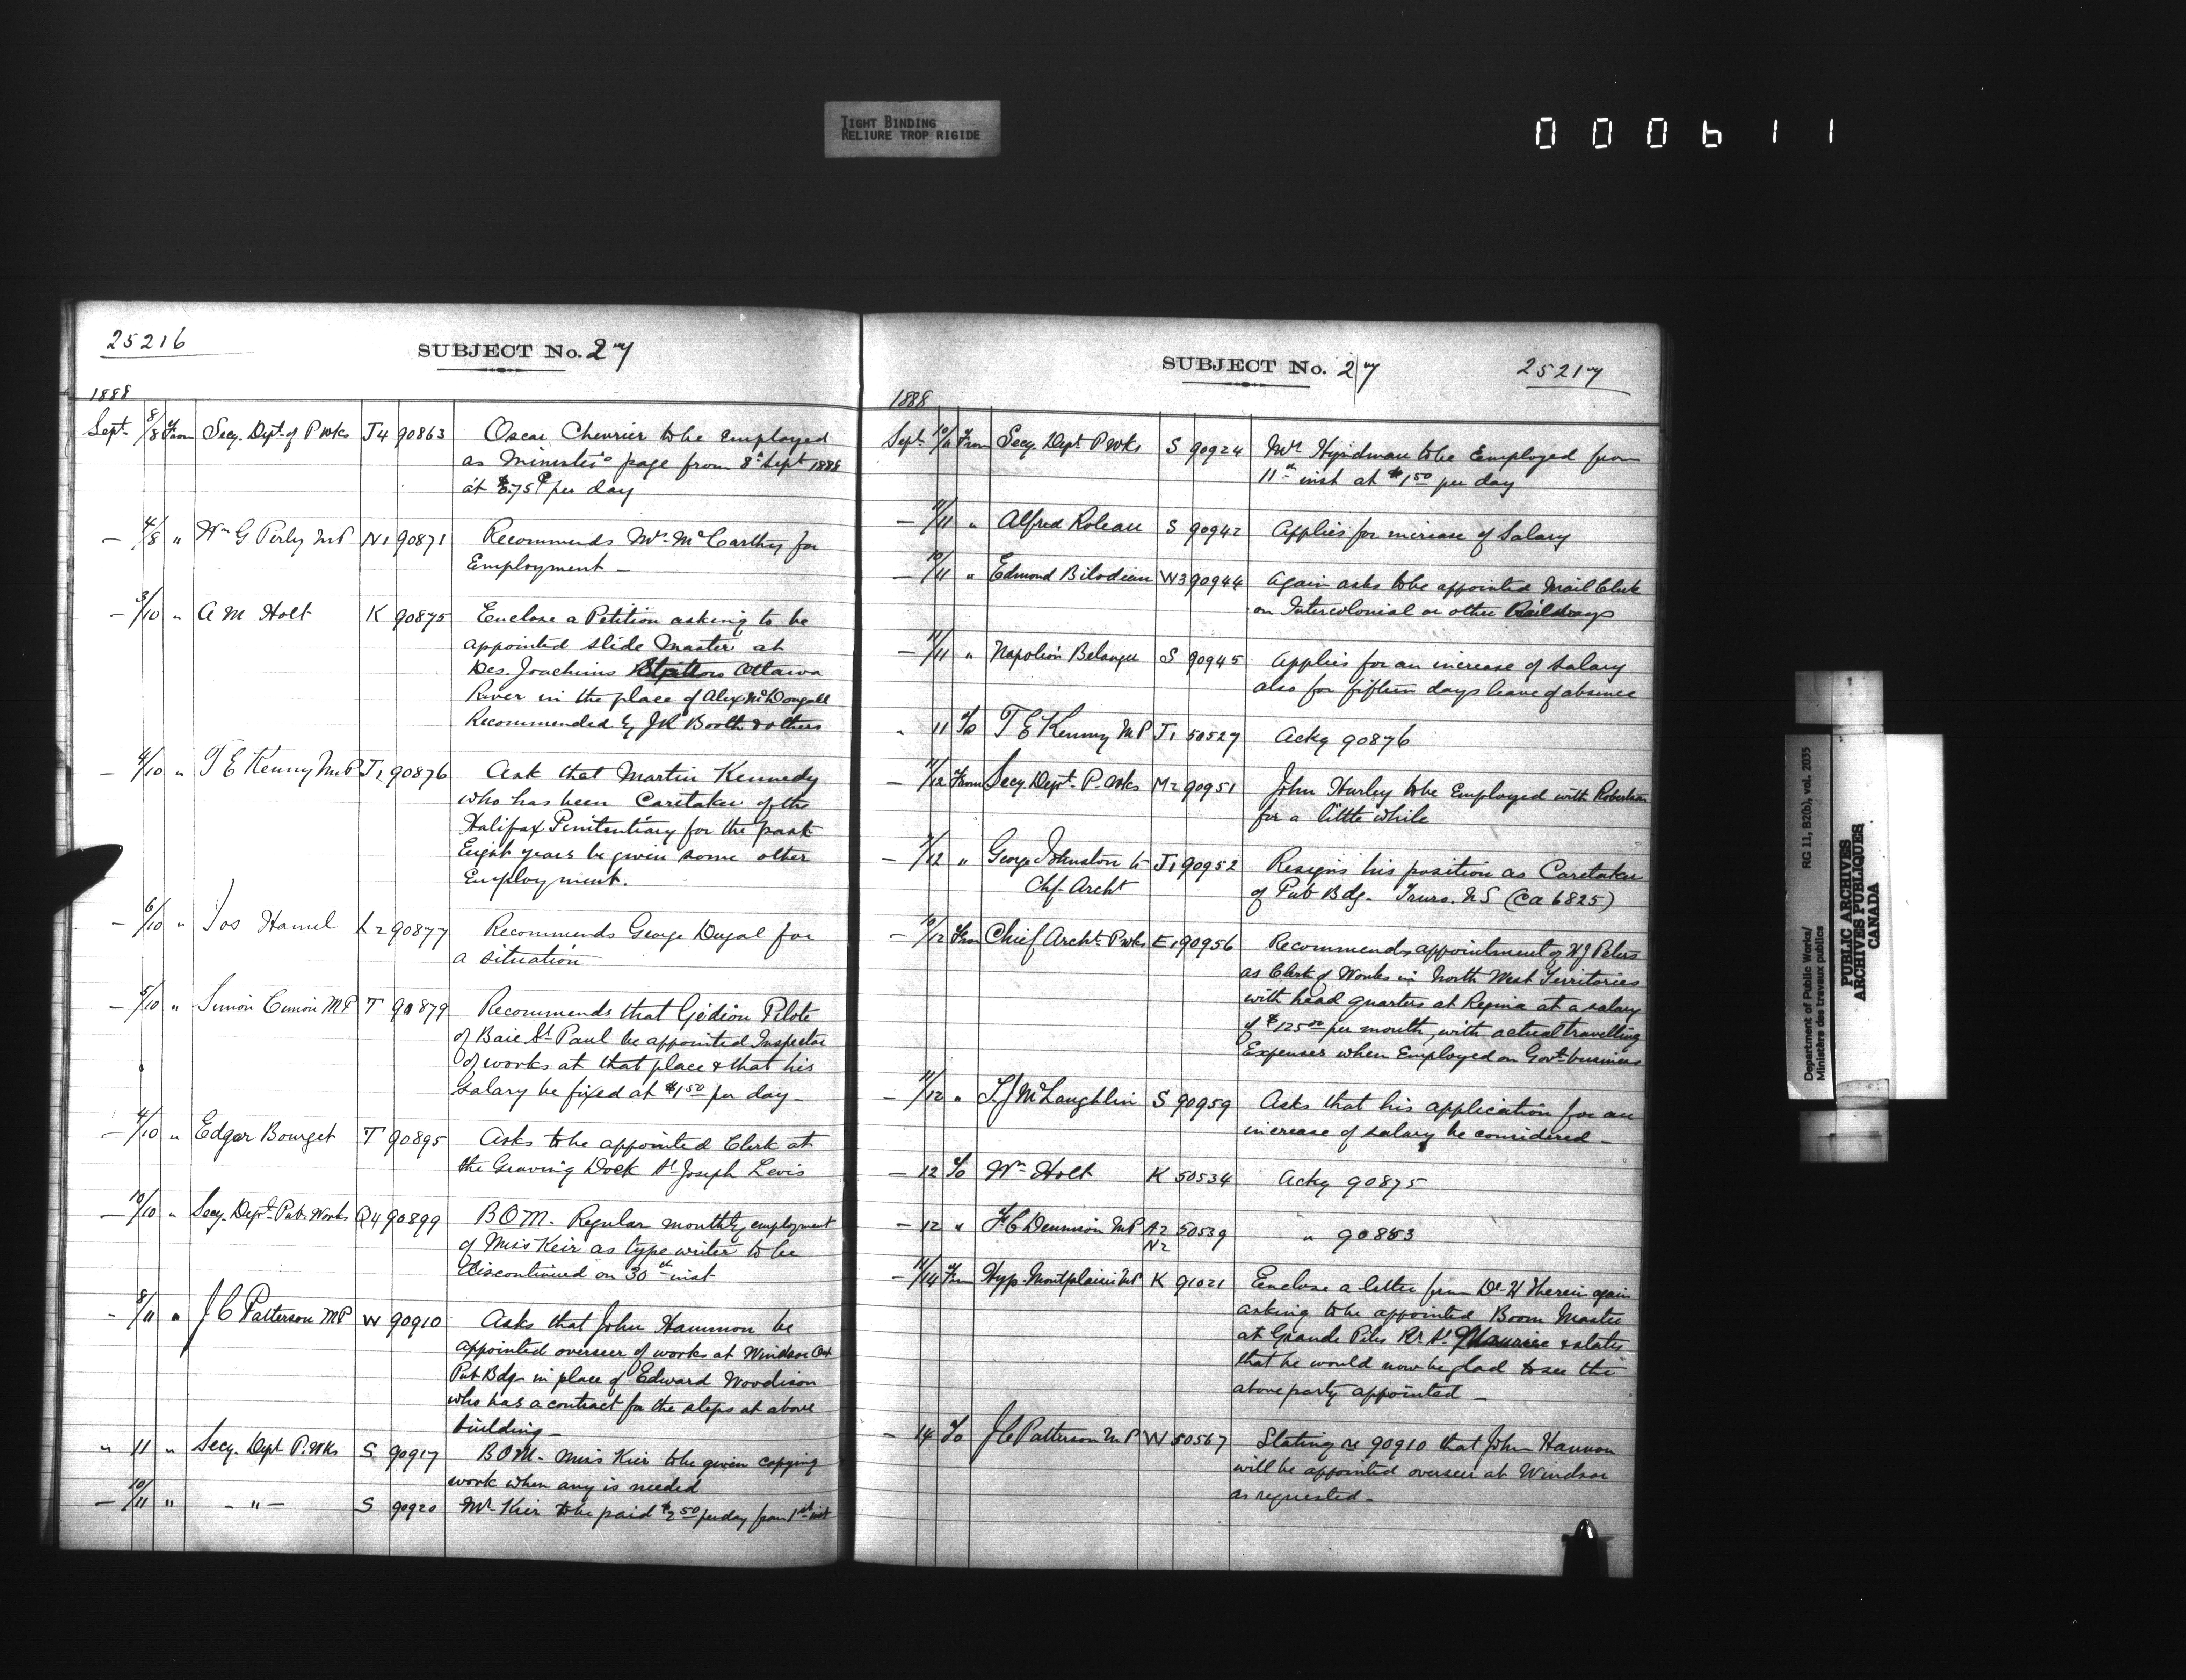 TIGHT BINDING
RELIURE TROP RIGIDE
000611
25216
SUBJECT No. 27
1888
Sept. 8/8 From Secy. Dept. of P Wks J4 90863 Oscar Chevrier to be employed
as Minister's page from 8th Sept 1888
at per day
— 4/8 " Wm G Perly MP N1 90871 Recommends Mr. McCarthy for
Employment —
— 3/10 " A M Holt K 90875 Enclose a Petition asking to be
appointed Slide Master at
Des Joachims Ottawa
River in the place of Alex McDougall
Recommended by JR Booth & others
— 4/10 " T E Kenny M.P J1 90876 Ask that Martin Kennedy
who has been Caretaker of the
Halifax Penitentiary for the past
Eight years be given some other
Employment.
— 6/10 " Jos Hamel L2 90877 Recommends George Dugal for
a situation
— 5/10 " Simon Cimon MP T 90879 Recommends that Gédéon Pilote
of Baie St Paul be appointed Inspector
of works at that place & that his
salary be fixed at $1.50 per day —
— 4/10 " Edgar Bourget T 90895 Asks to be appointed Clerk at
the Graving Dock St Joseph Levis
— 10/10 " Secy. Dept. Pub. Works Q4 90899 BOM. Regular monthly employment
of Miss Keir as type writer to be
discontinued on 30th inst
— 8/11 " J C Patterson MP W 90910 Asks that John Hammon be
appointed overseer of works at Windsor Ont
Pub Bdg in place of Edward Woodison
who has a contract for the steps at above
building —
" 11 " Secy. Dept P. Wks S 90917 BOM. Miss Kier to be given copying
work when any is needed
— 10/11 " — " — S 90920 Mr. Kier to be paid $2.50 per day from 1st inst
SUBJECT No. 27
25217
1888
Sept. 10/11 From Secy. Dept P Wks S 90924 Mr Hyndman to be Employed from
11th inst at $1.50 per day
— 11/11 " Alfred Roleau S 90942 Applies for increase of Salary
— 10/11 " Edmond Bilodeau W3 90944 Again asks to be appointed Mail Clerk
on Intercolonial or other Railways
— 11/11 " Napoléon Belanger S 90945 Applies for an increase of Salary
also for fifteen days leave of absence
" 11 To T E Kenny MP J1 50527 Ackg 90876
— 11/12 From Secy Dept. P. Wks M2 90951 John Hurley to be Employed with Robertson
for a little while
— 7/12 " George Johnston to J1 90952 Resigns his position as Caretaker
Chf. Archt of Pub Bdg. Truro. N.S (Ca 6825)
— 10/12 From Chief Archt. P Wks E1 90956 Recommends appointment of H J Peters
as Clerk of Works in North West Territories
with head quarters at Regina at a salary
of $125.00 per month, with actual travelling
Expenses when Employed on Govt. business
— 11/12 " T J McLaughlin S 90959 Asks that his application for an
increase of salary be considered —
— 12 To Wm Holt K 50534 Ackg 90875
— 12 " F C Dennison MP A2 50539 " 90853
N2
— 11/14 From Hyp. Montplaisir MP K 91021 Enclose a letter from Dr. H Therein again
asking to be appointed Boom Master
at Grande Piles Rr. St. Maurice & states
that he would now be glad to see the
above party appointed —
— 14 To J C Patterson M P W 50567 Stating re 90910 that John Hannon
will be appointed overseer at Windsor
as requested —
Department of Public Works/
Ministère des travaux publics
RG 11, B2(b), vol. 2035
PUBLIC ARCHIVES
ARCHIVES PUBLIQUES
CANADA